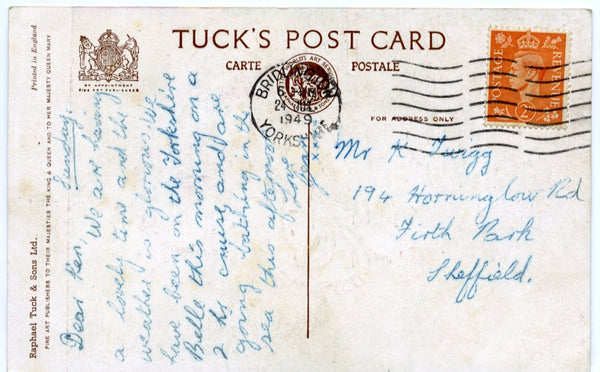 TUCK'S POST CARD
CARTE POSTALE
BY APPOINTMENT
FINE ART PUBLISHERS
Printed in England
Raphael Tuck & Sons Ltd.
FINE ART PUBLISHERS TO THEIR MAJESTIES THE KING & QUEEN AND TO HER MAJESTY QUEEN MARY
FOR ADDRESS ONLY
24 JUL
1949
YORKSHIRE
POSTAGE
REVENUE
Sunday
Dear Ken,
We are having
a lovely time and the
weather is glorious. We
have been on the Yorkshire
Belle this morning on a
2 hr cruise and are
going bathing in the
sea this afternoon
Love
Jean
xxx
Mr K
194 Horninglow Rd
Firth Park
Sheffield.